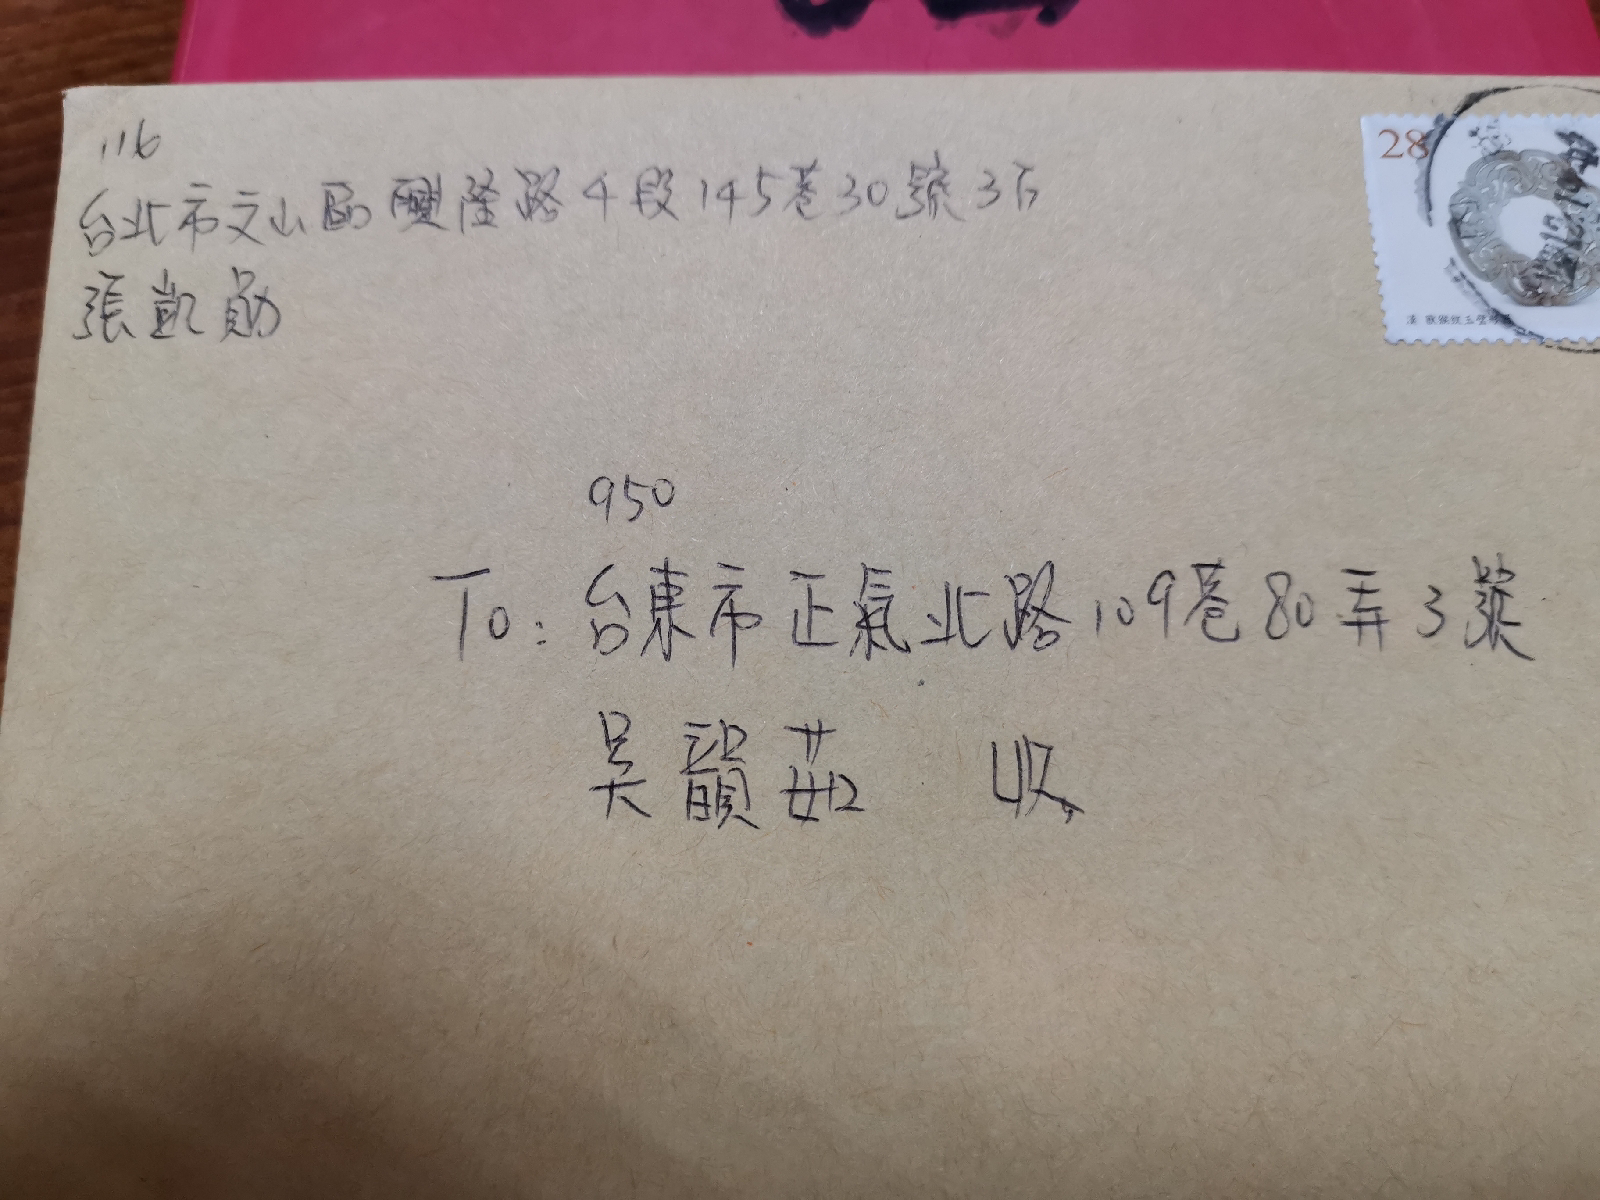 116
台北市文山區興隆路4段145巷30號3F
張凱勛
28
950
To: 台東市正氣北路109巷80弄3號
吳韻茹 收